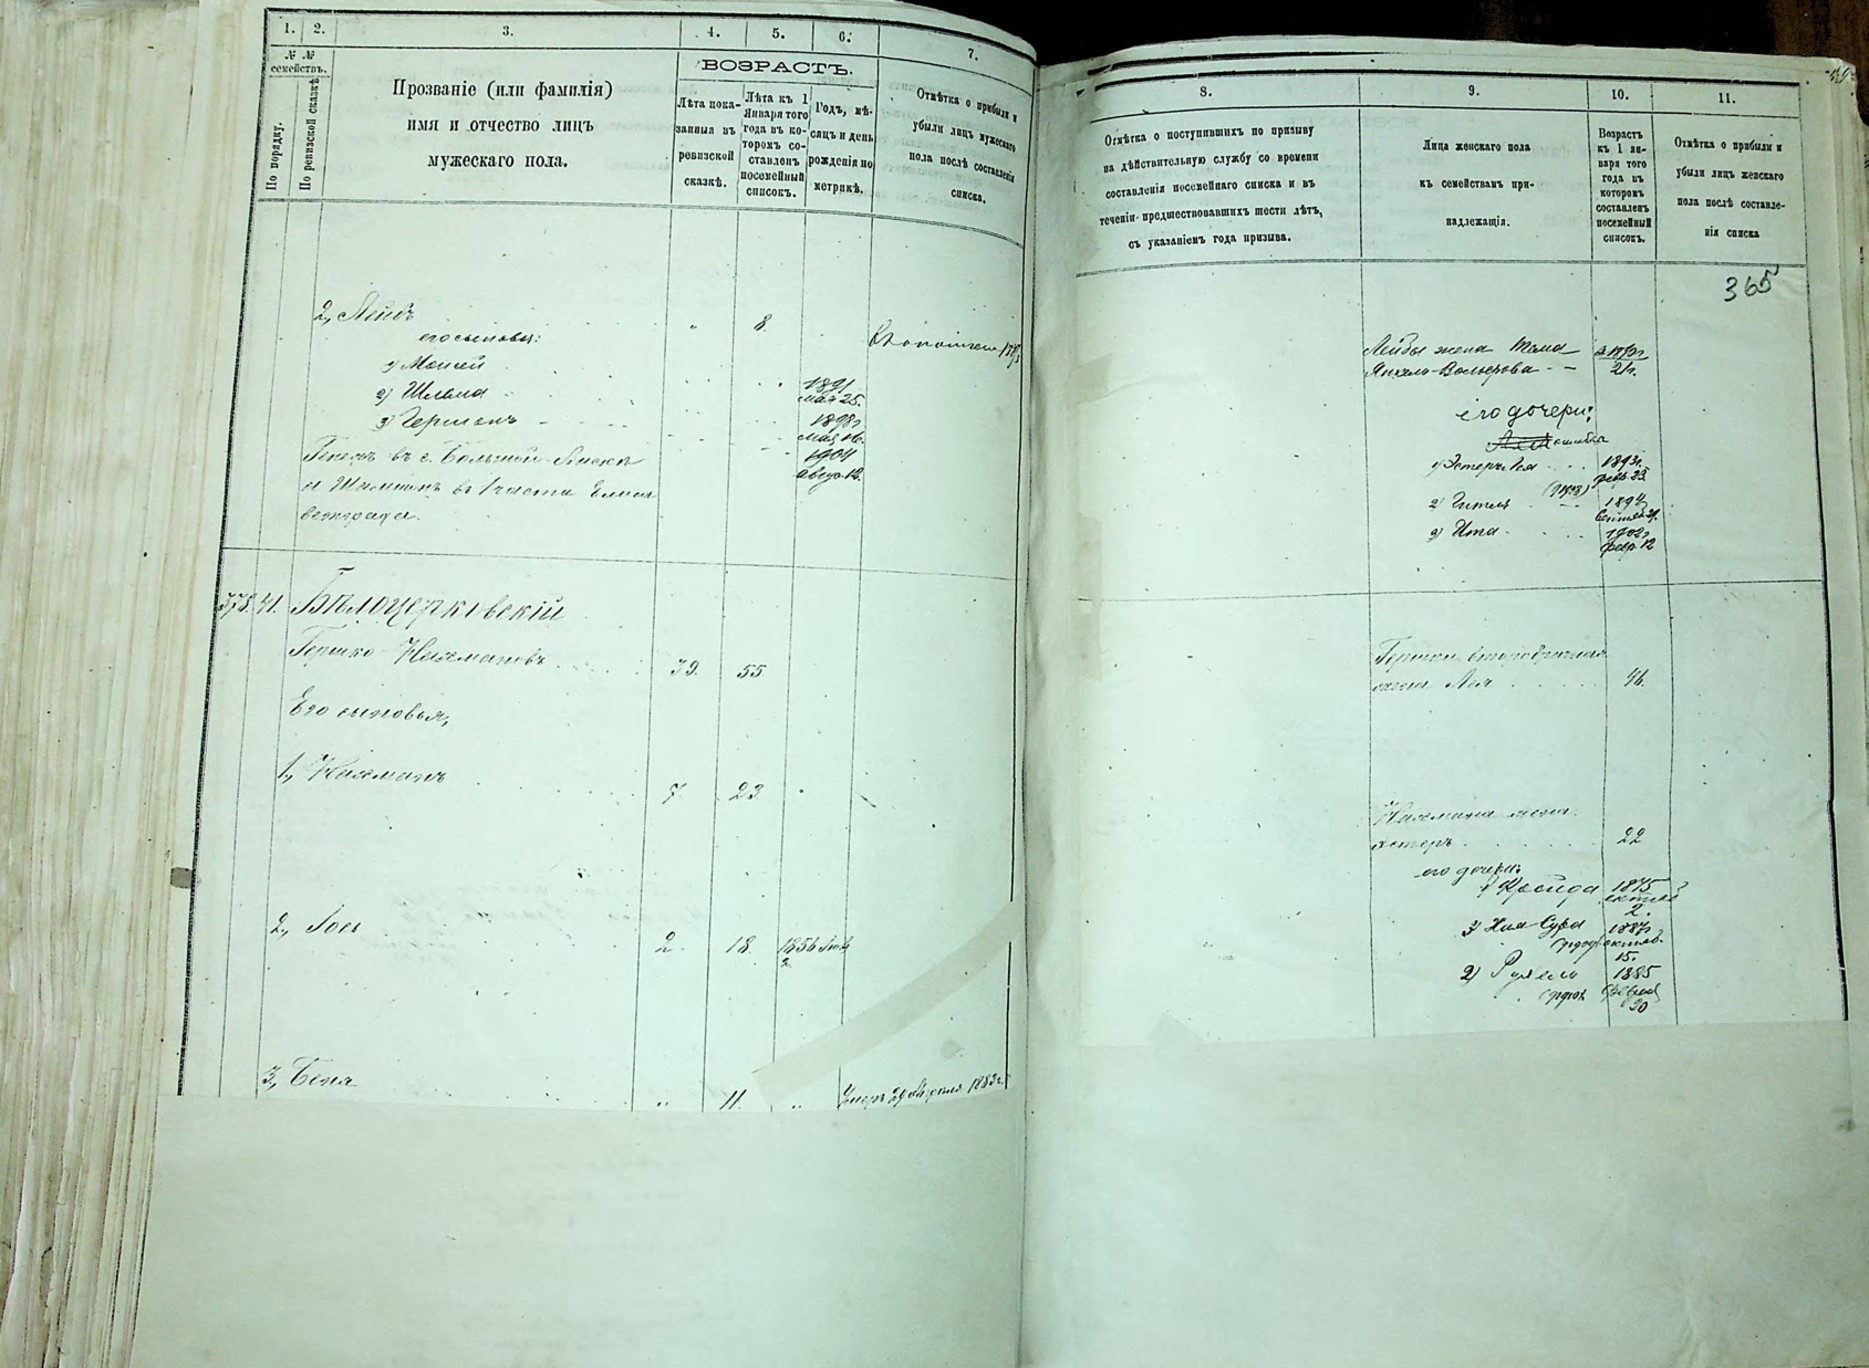 1. 2. 3. 4. 5. 6. 7.
№ №
семействъ.
По порядку.
По ревизской сказкѣ
Прозваніе (или фамилія)
имя и отчество лицъ
мужескаго пола.
ВОЗРАСТЪ.
Лѣта пока-
занныя въ
ревизской
сказкѣ.
Лѣта къ 1
Января того
года въ ко-
торомъ со-
ставленъ
посемейный
списокъ.
Годъ, мѣ-
сяцъ и день
рожденія по
метрикѣ.
Отмѣтка о прибыли и
убыли лицъ мужескаго
пола послѣ составленія
списка.
2, Лейбъ 8.
его сыновья:
1) Моисей 1891
мая 25.
2) Шлема 1898г
мая 16.
3) Гершонъ 1904
август. 12.
въ с. Большой Виски
и въ 1 части Елиса
ветграда.
378. 41. Бѣлоцерковскій
Гершко Нахмановъ 39. 55.
Его сыновья,
1, Нахманъ 7. 23.
2, Іось 2. 18. 1856
2.
3, Беня " 11. " Умеръ 29 Апреля 1883г.
8. 9. 10. 11.
Отмѣтка о поступившихъ по призыву
на дѣйствительную службу со времени
составленія посемейнаго списка и въ
теченіи предшествовавшихъ шести лѣтъ,
съ указаніемъ года призыва.
Лица женскаго пола
къ семействамъ при-
надлежащія.
Возрастъ
къ 1 ян-
варя того
года въ
которомъ
составленъ
посемейный
списокъ.
Отмѣтка о прибыли и
убыли лицъ женскаго
пола послѣ составле-
нія списка
365
Лейбы жена
21г.
его дочери:
Лея ошибка
1) Эстеръ Лея 1893г.
февр. 23.
2) Гитля 1894
3) Ита 1902г
февр. 12
Гершки второбрачная
жена Лея 46.
Нахмана жена
Эстеръ 22
его дочери:
1875
2.
3) Хая-Сура 1887г
октяб.
15.
2) Рухель 1885
Феврал
20